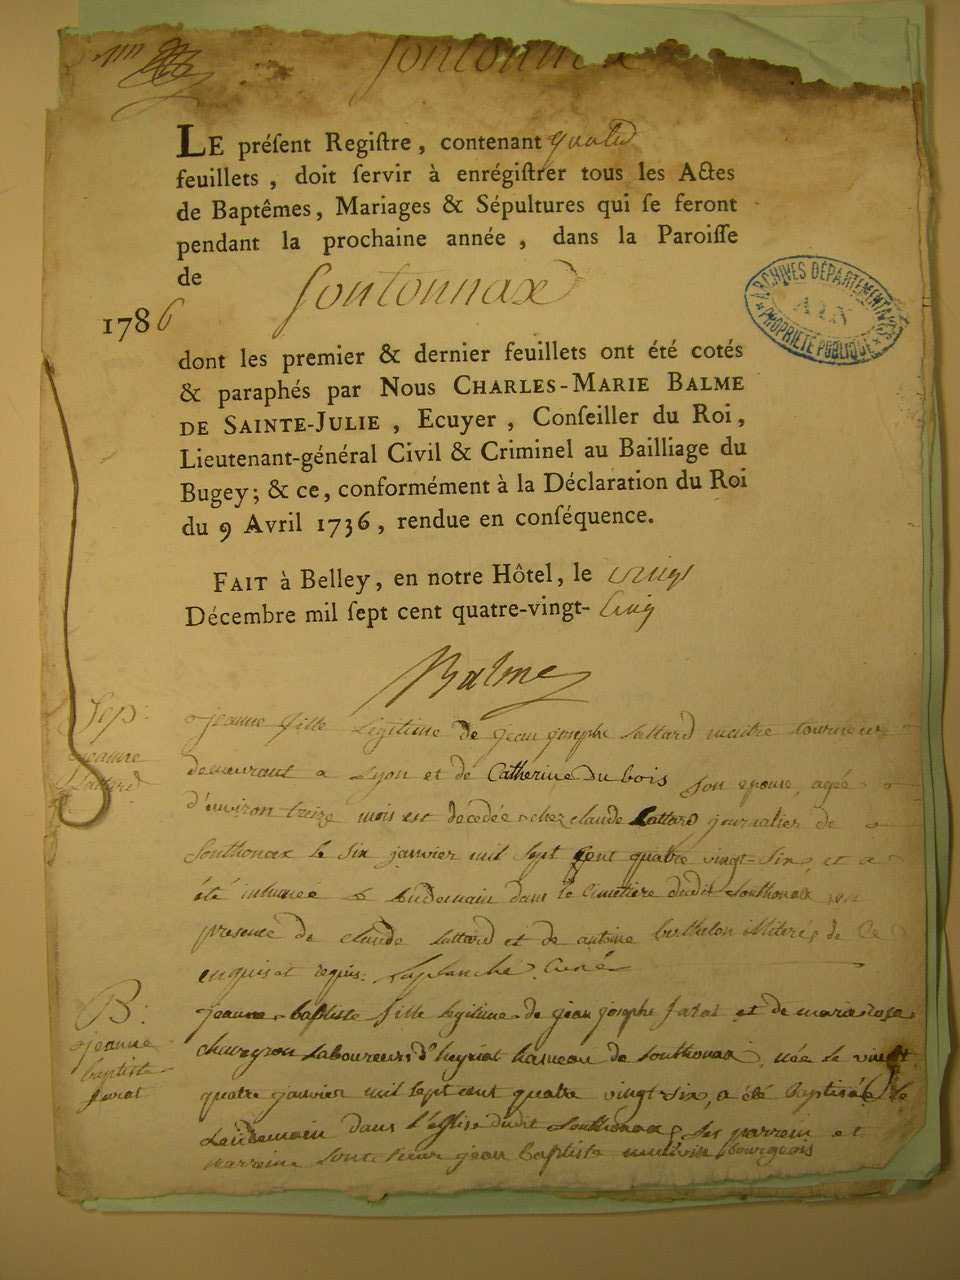 Sontonnax
LE préſent Regiſtre, contenant quatre
feuillets, doit ſervir à enrégiſtrer tous les Actes
de Baptêmes, Mariages & Sépultures qui ſe feront
pendant la prochaine année, dans la Paroiſſe
de Sontonnax
1786
ARCHIVES DÉPARTEMENTALES
AIN
PROPRIÉTÉ PUBLIQUE
dont les premier & dernier feuillets ont été cotés
& paraphés par Nous CHARLES-MARIE BALME
DE SAINTE-JULIE, Ecuyer, Conſeiller du Roi,
Lieutenant-général Civil & Criminel au Bailliage du
Bugey; & ce, conformément à la Déclaration du Roi
du 9 Avril 1736, rendue en conſéquence.
FAIT à Belley, en notre Hôtel, le vingt
Décembre mil ſept cent quatre-vingt-cinq
Balme
Sep:
jeanne
Lattard
jeanne fille Legitime de jean josephe Lattard maitre tourneur
demeurant a Lyon et de Catherine Dubois son epouse, agée
d'environ treize mois est decedée chez claude Lattard journalier de
Southonax le six janvier mil sept cent quatre vingt-six, et a
été inhumée le Lendemain dans le cimetière dudit Southonax en
presence de claude Lattard et de antoine berthelon illiterés de ce
enquis et requis. Laplanche curé
B:
jeanne
baptiste
jeanne baptiste fille legitime de jean josephe et de marie rose
laboureurs d'heyriat hameau de Southonax, née le vingt
quatre janvier mil sept cent quatre vingt-six, a été baptisée le
Lendemain dans l'eglise dudit Southonax, ses parrein et
marreine sont sieur jean baptiste bourgeois